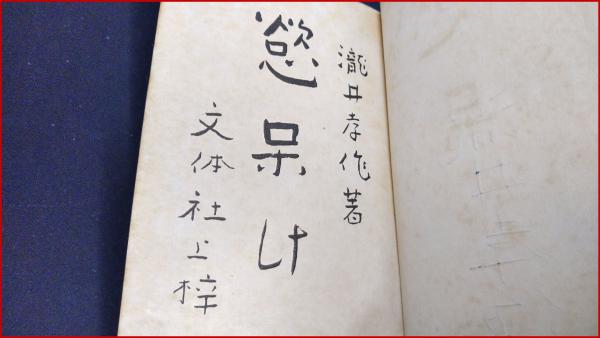 瀧井孝作著
慾呆け
文体社上梓